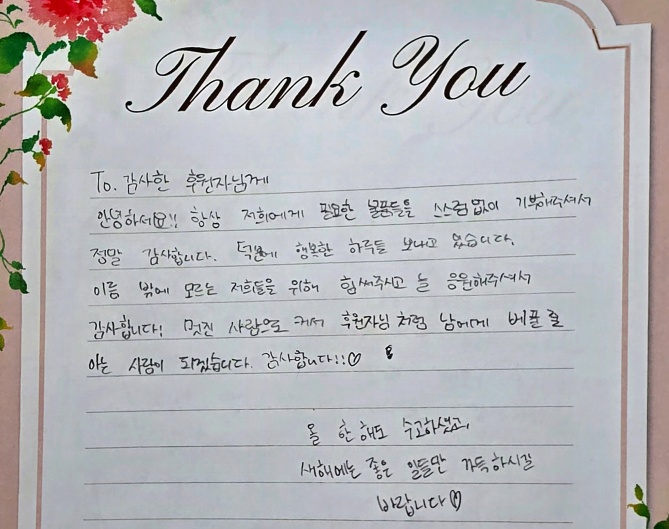 Thank You
To. 감사한 후원자님께
안녕하세요!! 항상 저희에게 필요한 물품들을 스스럼없이 기부해주셔서
정말 감사합니다. 덕분에 행복한 하루를 보내고 있습니다.
이름 밖에 모르는 저희들을 위해 힘써주시고 늘 응원해주셔서
감사합니다! 멋진 사람으로 커서 후원자님 처럼 남에게 베풀 줄
아는 사람이 되겠습니다. 감사합니다!!♡
올 한해도 수고하셨고,
새해에는 좋은 일들만 가득하시길
바랍니다♡